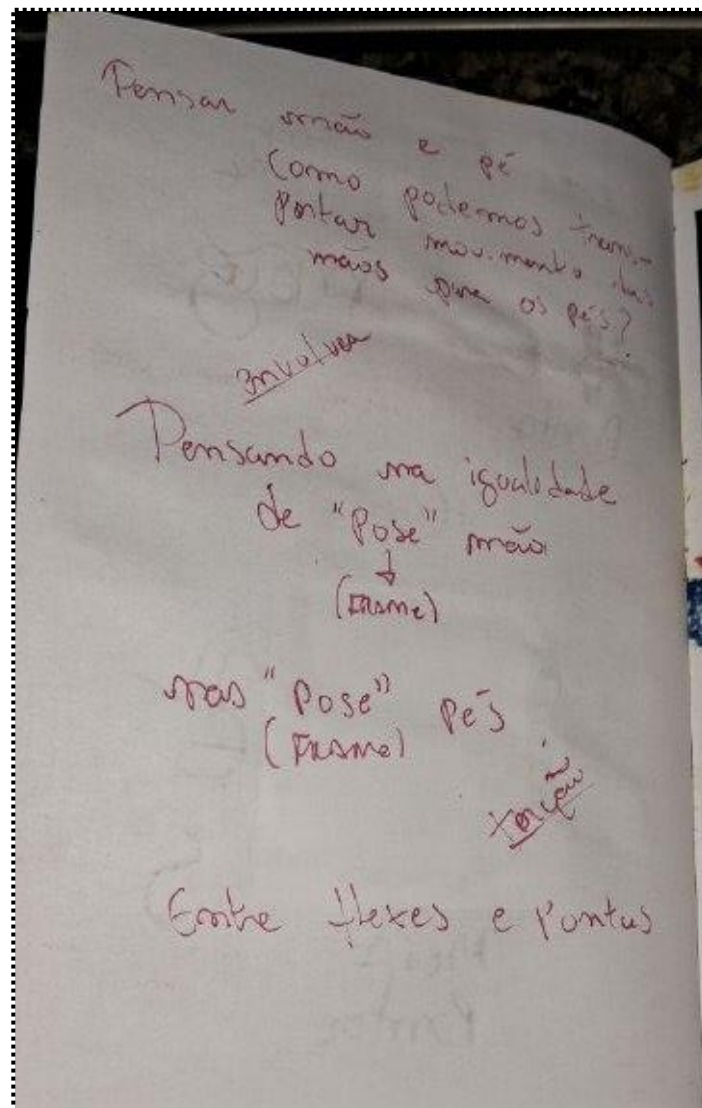 Pensar mão e pé
Como podemos trans-
portar movimento das
mãos para os pés?
Envolver
Pensando na igualdade
de "Pose" mão
(FRAME)
nas "Pose" pés
(FRAME)
torção
Entre flexes e Pontas